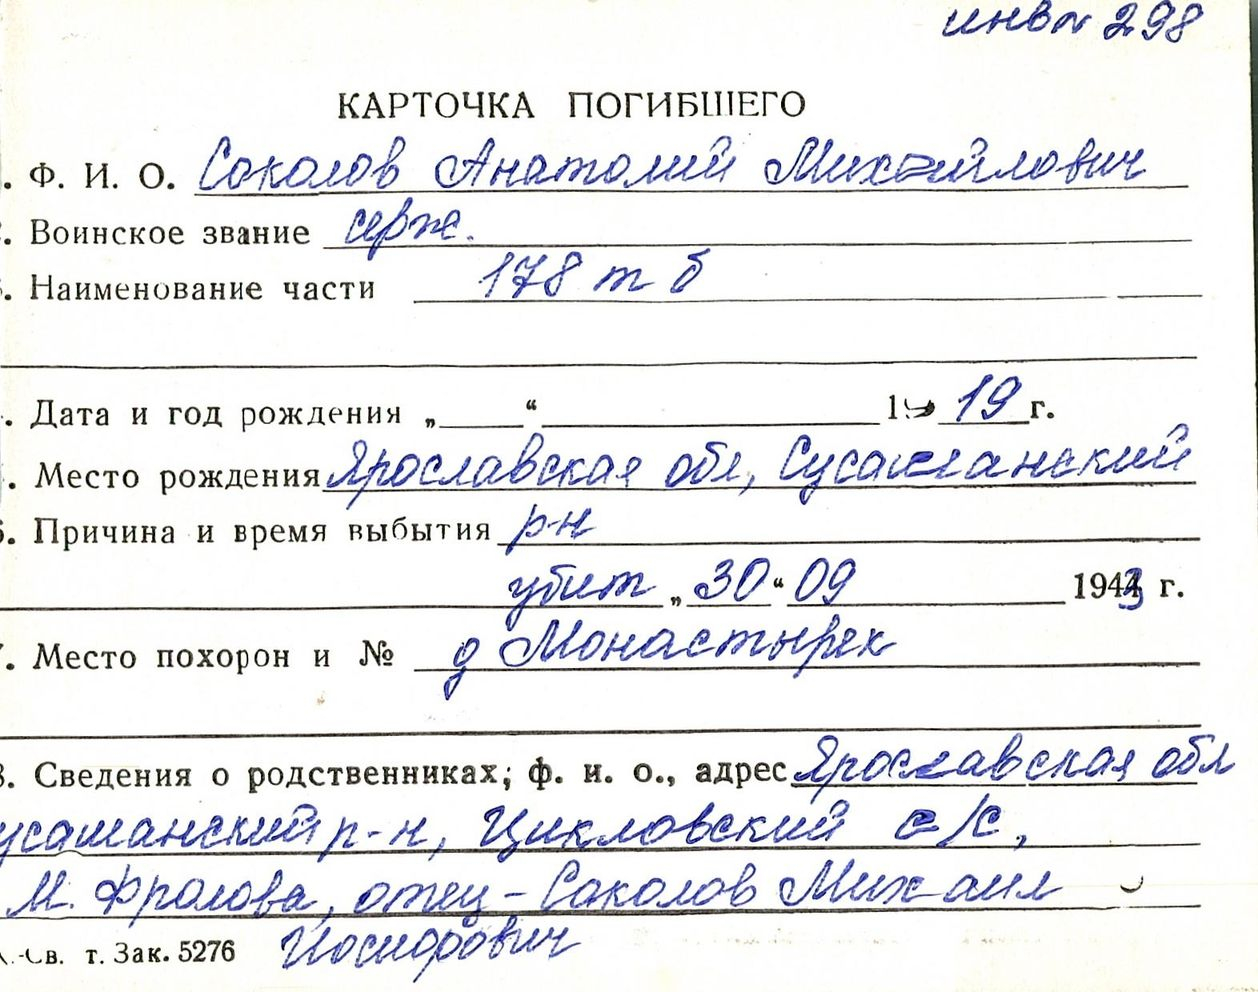 инв № 298
КАРТОЧКА ПОГИБШЕГО
. Ф. И. О. Соколов Анатолий Михайлович
. Воинское звание серж.
. Наименование части 178 т б
. Дата и год рождения „ “ 19 19 г.
. Место рождения Ярославская обл, Сусашанский
6. Причина и время выбытия р-н
убит „ 30 “ 09 1943 г.
. Место похорон и № д Монастырек
8. Сведения о родственниках; ф. и. о., адрес Ярославская обл
усашанский р-н, Цикловский с/с,
М. Фролова, отец - Соколов Михаил
т. Зак. 5276